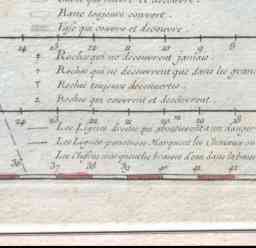 Banc toujours couvert.
Vase qui couvre et decouvre.
24 23 22 11 10 9 8
Roches qui ne decouvrent jamais.
Roches qui ne decouvrent que dans les grandes
Roches toujours decouvertes.
Roches qui couvrent et decouvrent.
24 23 22 20 19 18
Les Lignes droites qui aboutissent a un danger
Les Lignes ponctuées Marquent les Chenaux ou
Les Chifres marquent les brasses d'eau dans la basse
36 37 38 39 40 41 42